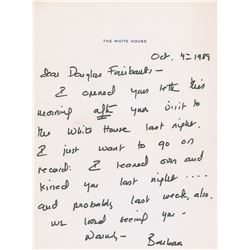 THE WHITE HOUSE
Oct. 4th 1989
Dear Douglas Fairbanks -
I opened your letter this
morning after your visit to
the White House last night.
I just want to go on
record: I leaned over and
kissed you last night ....
and probably last week, also.
We loved seeing you -
Warmly - Barbara